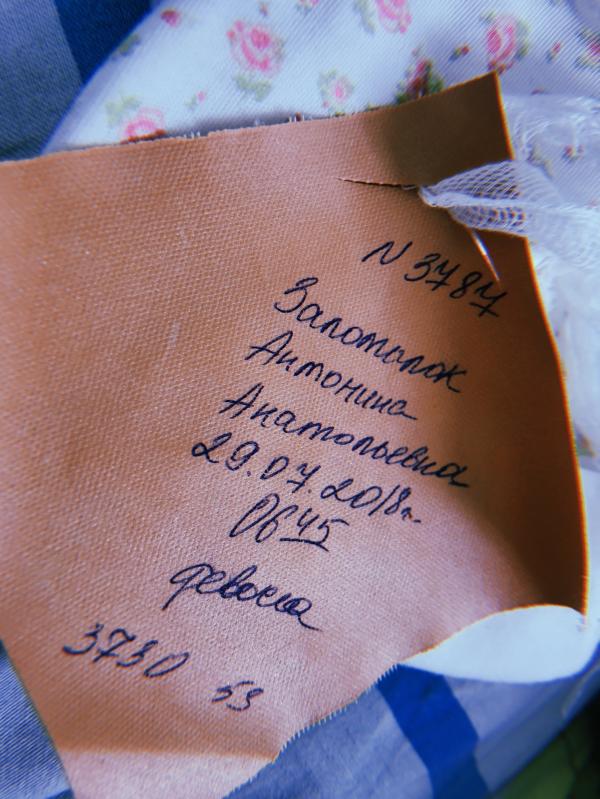 N 3787
Залотолок
Антонина
Анатольевна
29.07.2018г.
0645
девочка
3730 53